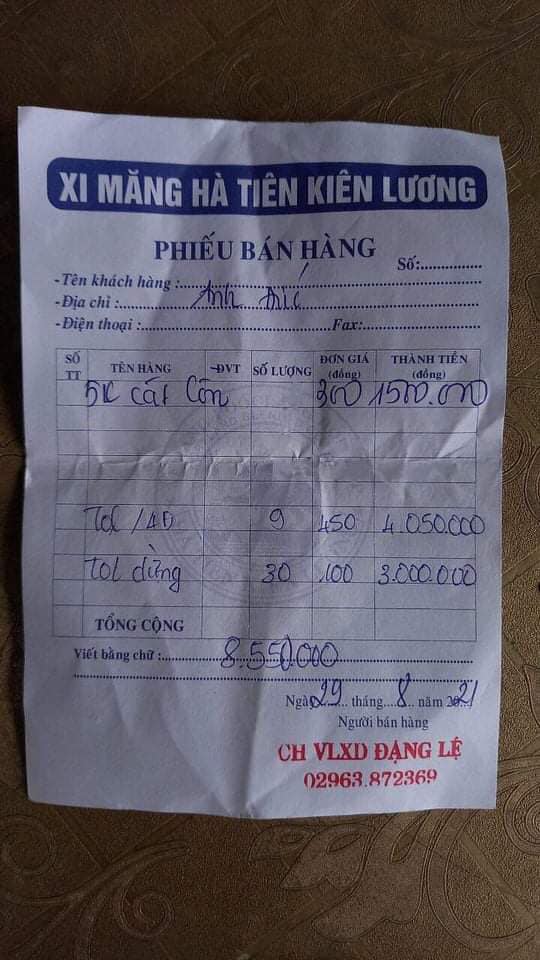 XI MĂNG HÀ TIÊN KIÊN LƯƠNG
PHIẾU BÁN HÀNG
Số:
-Tên khách hàng :
-Địa chỉ : Anh
-Điện thoại : Fax:
SỐ TT TÊN HÀNG -ĐVT SỐ LƯỢNG ĐƠN GIÁ (đồng) THÀNH TIỀN (đồng)
5K Cát Côn 300 1500.000
Tol 9 450 4.050.000
Tol dừng 30 100 3.000.000
TỔNG CỘNG
Viết bằng chữ : 8.550.000
Ngày 29 tháng 8 năm 2021
Người bán hàng
CH VLXD ĐẶNG LỆ
02963.872369